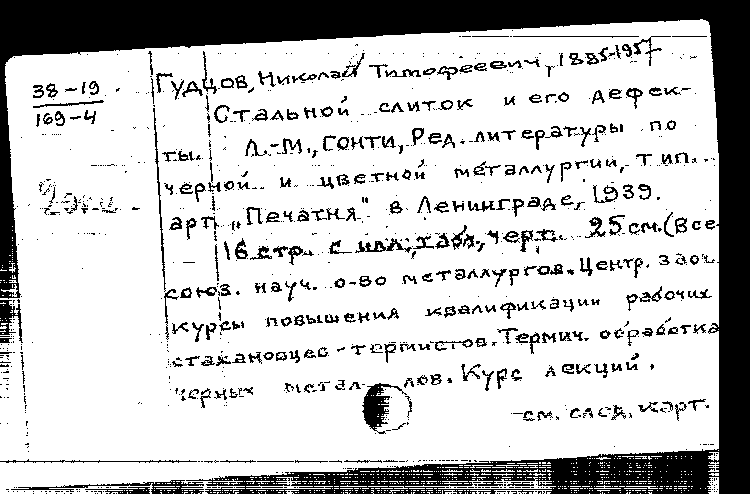 38-19
169-4
2 экз.
Гудцов, Николай Тимофеевич, 1885-1957
Стальной слиток и его дефек-
ты. Л.-М., ГОНТИ, Ред. литературы по
черной и цветной металлургии, тип.
арт. „Печатня" в Ленинграде, 1939.
16 стр. с илл.; табл, черт. 25 см. (Все-
союз. науч. о-во металлургов. Центр. заоч.
курсы повышения квалификации рабочих
стахановцев-термистов. Термич. обработка
черных метал- лов. Курс лекций.
см. след. карт.